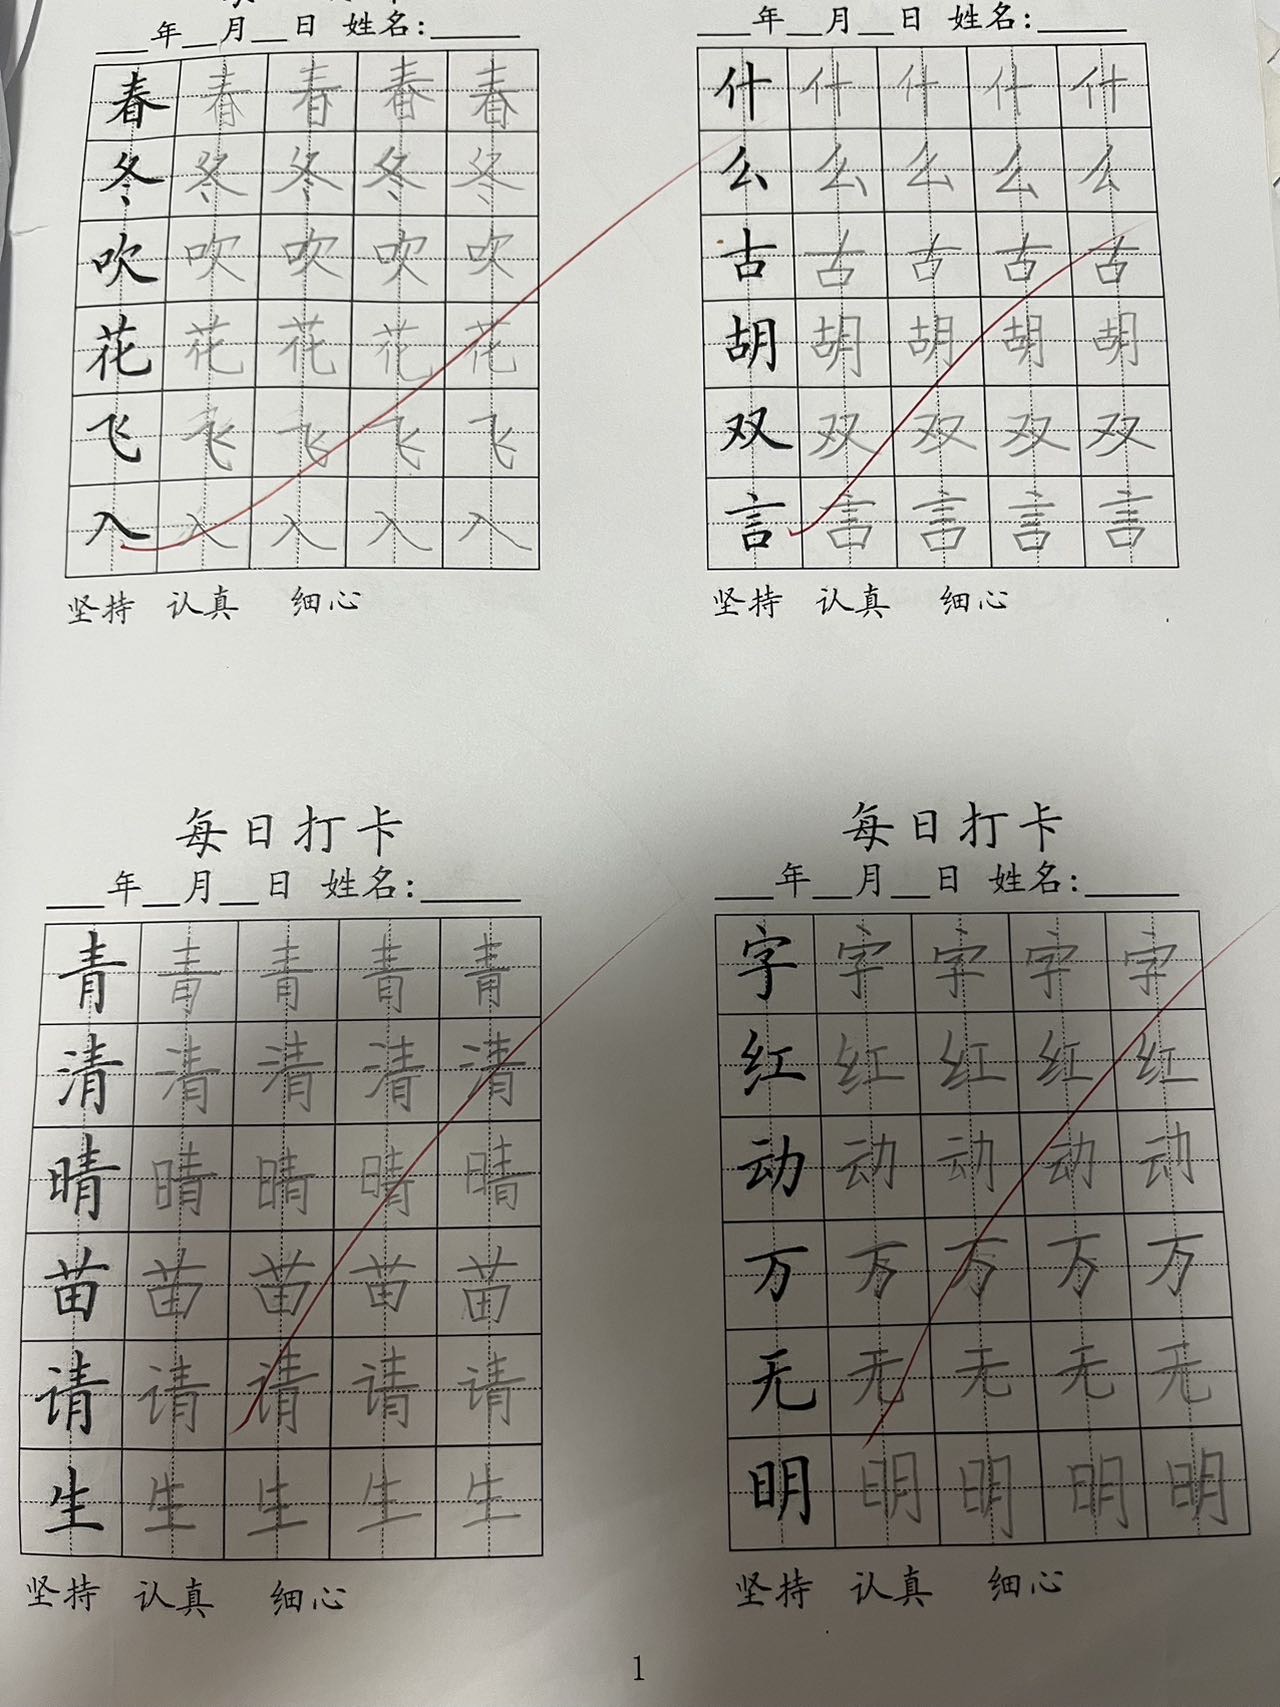 ___年__月__日 姓名:_____
春 春 春 春 春
冬 冬 冬 冬 冬
吹 吹 吹 吹 吹
花 花 花 花 花
飞 飞 飞 飞 飞
入 入 入 入 入
坚持 认真 细心
___年__月__日 姓名:_____
什 什 什 什 什
么 么 么 么 么
古 古 古 古 古
胡 胡 胡 胡 胡
双 双 双 双 双
言 言 言 言 言
坚持 认真 细心
每日打卡
___年__月__日 姓名:_____
青 青 青 青 青
清 清 清 清 清
晴 晴 晴 晴 晴
苗 苗 苗 苗 苗
请 请 请 请 请
生 生 生 生 生
坚持 认真 细心
每日打卡
___年__月__日 姓名:_____
字 字 字 字 字
红 红 红 红 红
动 动 动 动 动
万 万 万 万 万
无 无 无 无 无
明 明 明 明 明
坚持 认真 细心
1